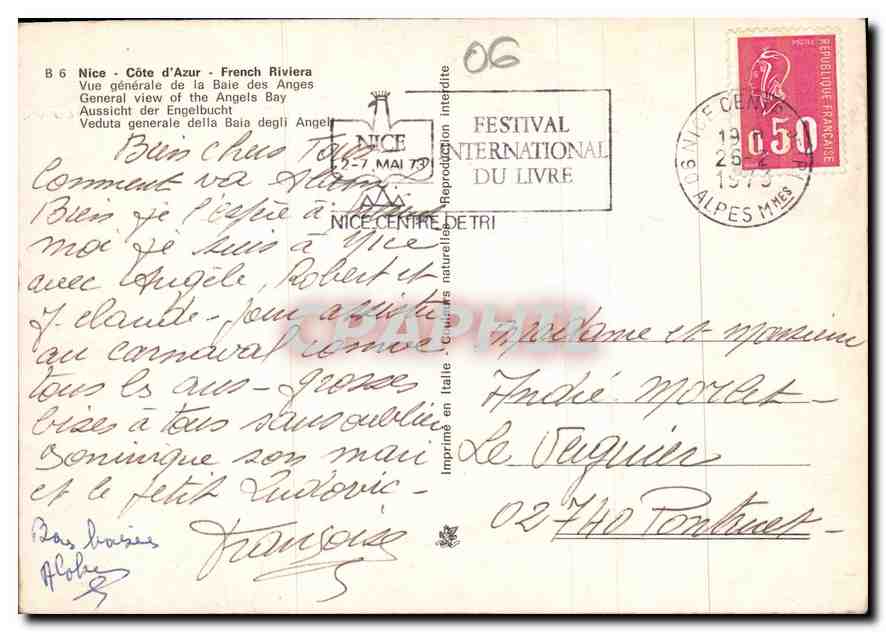 06
B 6 Nice - Côte d'Azur - French Riviera
Vue générale de la Baie des Anges
General view of the Angels Bay
Aussicht der Engelbucht
Veduta generale della Baia degli Angeli
NICE
2-7 MAI 73
FESTIVAL
INTERNATIONAL
DU LIVRE
NICE CENTRE DE TRI
06 NICE CENTRE
19 H
26-2
1973
ALPES MMES
REPUBLIQUE FRANÇAISE
0,50
Bien chers
Comment va
Bien je l'espère à
moi je suis à Nice
avec Angèle, Robert et
J. claude - pour assister
au carnaval comme
tous les ans - grosses
bises à tous sans oublier
Dominique son mari
et le petit Ludovic -
Françoise
Bons baisers
Imprimé en Italie. Couleurs naturelles. Reproduction interdite
Madame et Monsieur
André Morlet -
Le Verguier
02740 Pontruet -
CPAPHIL